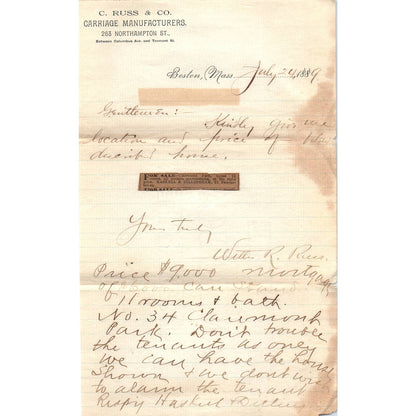 C. RUSS & CO.
CARRIAGE MANUFACTURERS.
253 NORTHAMPTON ST.,
Between Columbus Ave. and Tremont St.
Boston, Mass. July 24, 1889
Gentlemen:
Kindly give me
location and price of
described home.
FOR SALE
Yours truly
R. Russ.
Price $9,000 mortgage
of can stand
11 rooms & bath.
No. 34 Clairmont
Park. Don't trouble
the tenants as only
we can have the house
shown & we don't wish
to alarm the tenant
Respy Haskell &